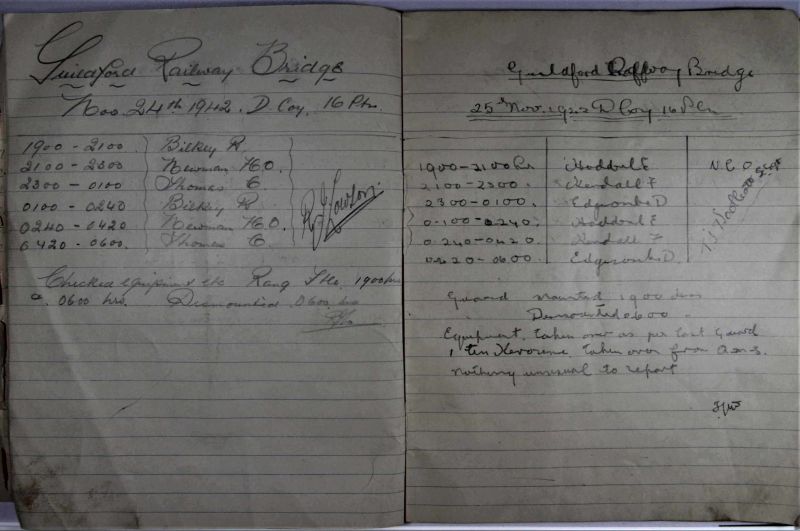 Guildford Railway Bridge
Nov 24th 1942. D. Coy. 16 Pln.
1900 - 2100 Bilkey R.
2100 - 2300 Newman H.O.
2300 - 0100 Thomas C
0100 - 0240 Bilkey R
0240 - 0420 Newman H.O.
0420 - 0600. Thomas C.
Checked equipment etc Rang 1900 hrs
0600 hrs. Dismounted 0600 hrs
Guildford Railway Bridge
25th Nov. 1942 D Coy 16 Pln
1900 - 2100 hr E N.C.O
2100 - 2300. Kendall F
2300 - 0100. Edgcombe D
0100 - 0240. E
0240 - 0420. Kendall F
0420 - 0600 Edgcombe D.
Guard mounted 1900 hrs
Dismounted 0600
Equipment taken over as per last Guard
1 tin taken over from
Nothing unusual to report